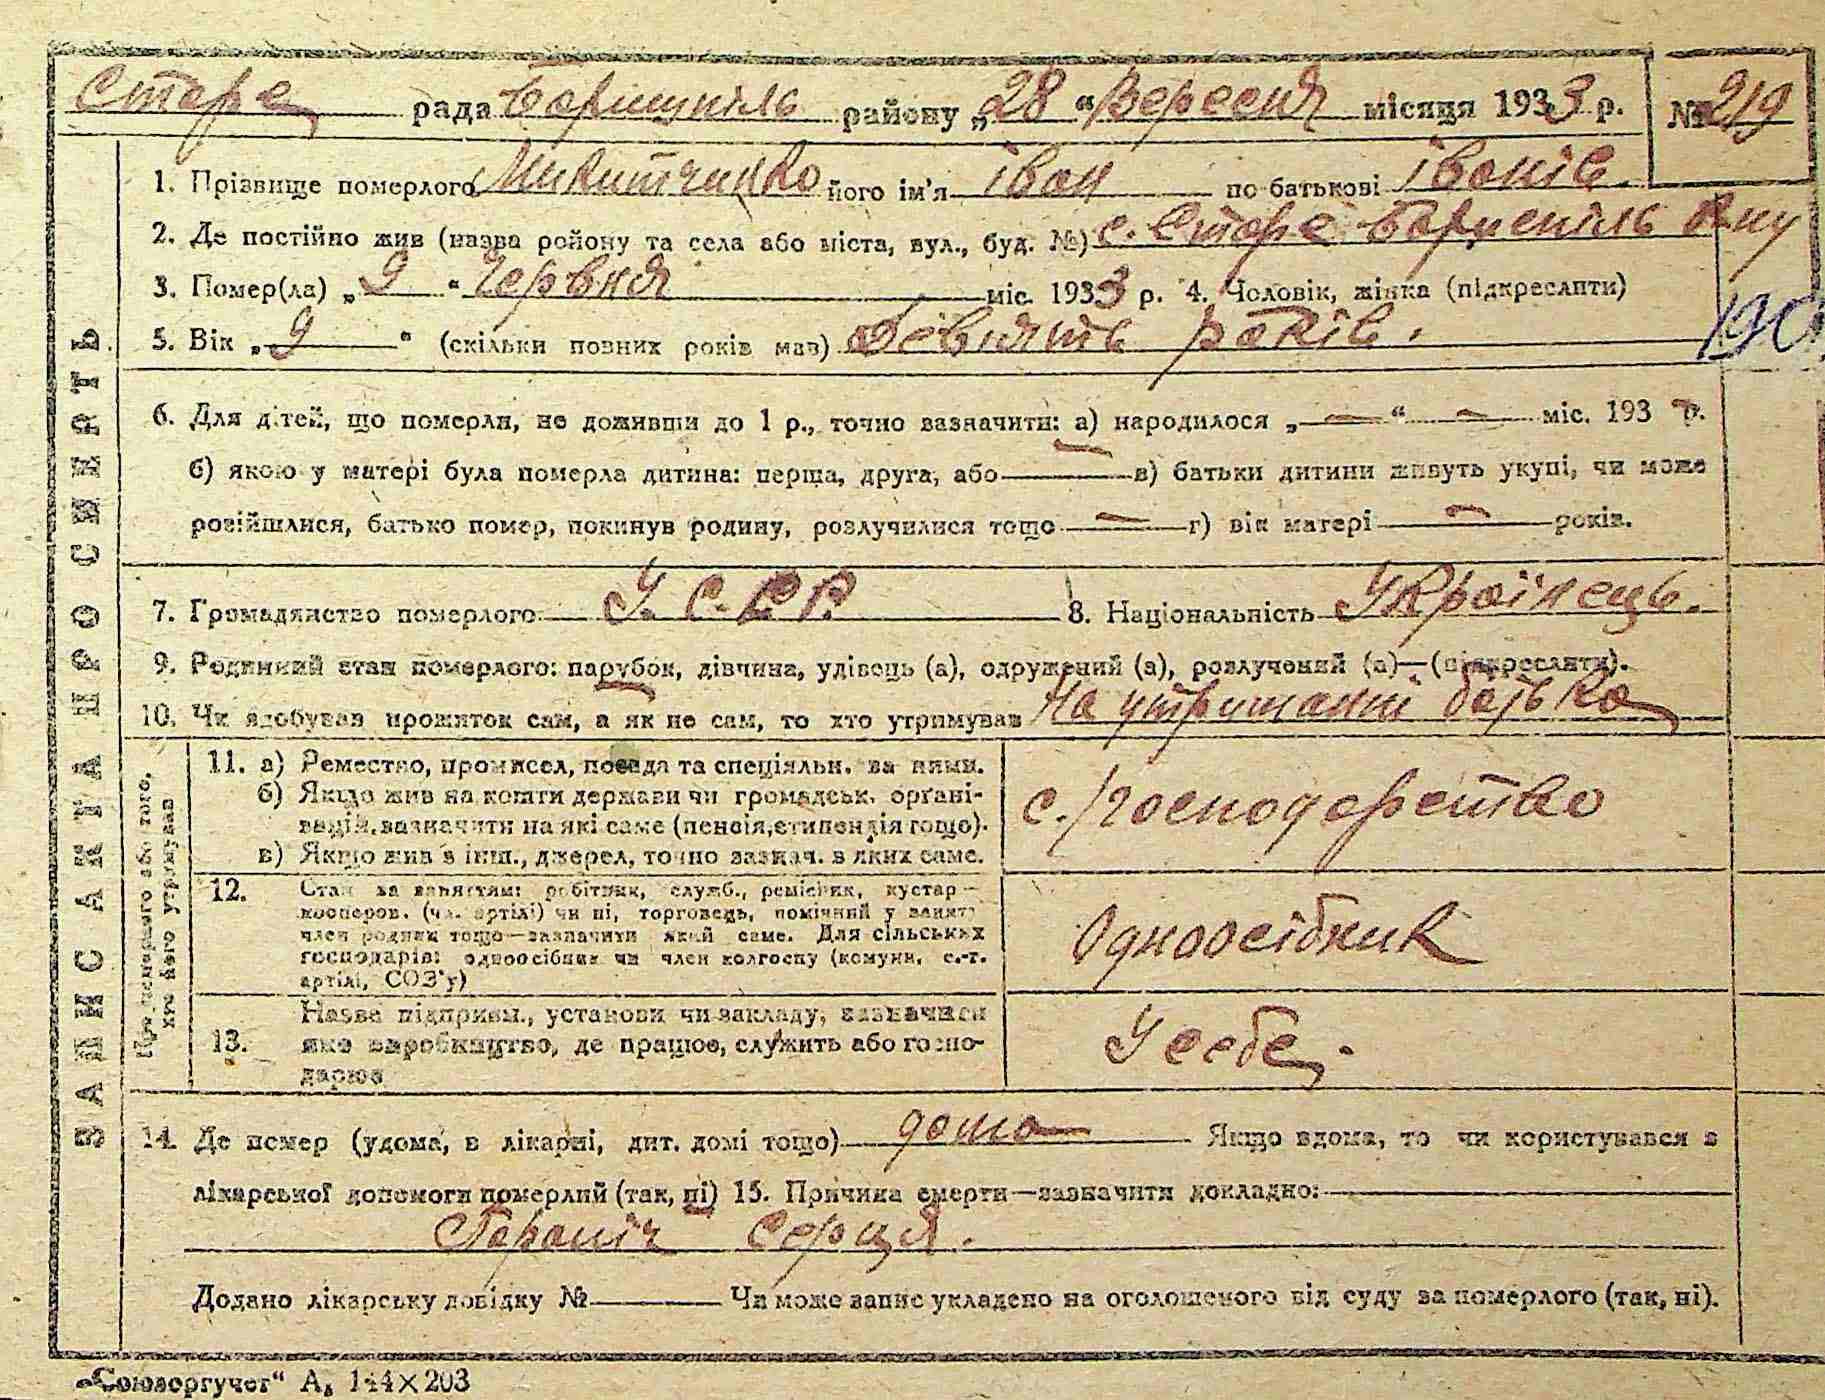 Старе рада Боришпіль району „28“ Вересня місяця 1933 р. № 219
1. Прізвище померлого Микитченко його ім'я Іван по батькові Іванів.
2. Де постійно жив (назва району та села або міста, вул., буд. №) с. Старе Бориспіль р-ну
3. Помер(ла) „9“ Червня міс. 1933 р. 4. Чоловік, жінка (підкреслити)
5. Вік „9“ (скільки повних років мав) Девять років.
190
6. Для дітей, що померли, не доживши до 1 р., точно зазначити: а) народилося „—“ — міс. 193 р.
б) якою у матері була померла дитина: перша, друга, або — в) батьки дитини живуть укупі, чи може
розійшлися, батько помер, покинув родину, розлучилися тощо — г) вік матері — років.
7. Громадянство померлого У.С.Р.Р. 8. Національність Українець.
9. Родинний стан померлого: парубок, дівчина, удівець (а), одружений (а), розлучений (а)—(підкреслити).
10. Чи здобував прожиток сам, а як не сам, то хто утримував На утриманні батька
ЗАПИС АКТА ПРО СМЕРТЬ
Про померлого або того,
хто його утримував
11. а) Ремество, промисел, посада та спеціяльн. за ними.
б) Якщо жив на кошти держави чи громадськ. органі-
зацій, зазначити на які саме (пенсія, стипендія тощо).
в) Якщо жив з інш., джерел, точно зазнач. з яких саме.
с./господарство
12. Стан за заняттям: робітник, служб., ремісник, кустар—
кооперов. (чл. артілі) чи ні, торговець, помічний у занятт.
член родини тощо—зазначити який саме. Для сільських
господарів: одноосібник чи член колгоспу (комуни, с.-г.
артілі, СОЗ'у)
Одноосібник
13. Назва підприєм., установи чи закладу, зазначити
яке виробництво, де працює, служить або госпо-
дарює
У себе.
14. Де помер (удома, в лікарні, дит. домі тощо) дома Якщо вдома, то чи користувався з
лікарської допомоги померлий (так, ні) 15. Причина смерти—зазначити докладно:
серця.
Додано лікарську довідку № Чи може запис укладено на оголошеного від суду за померлого (так, ні).
„Союзоргучет“ А, 144×203